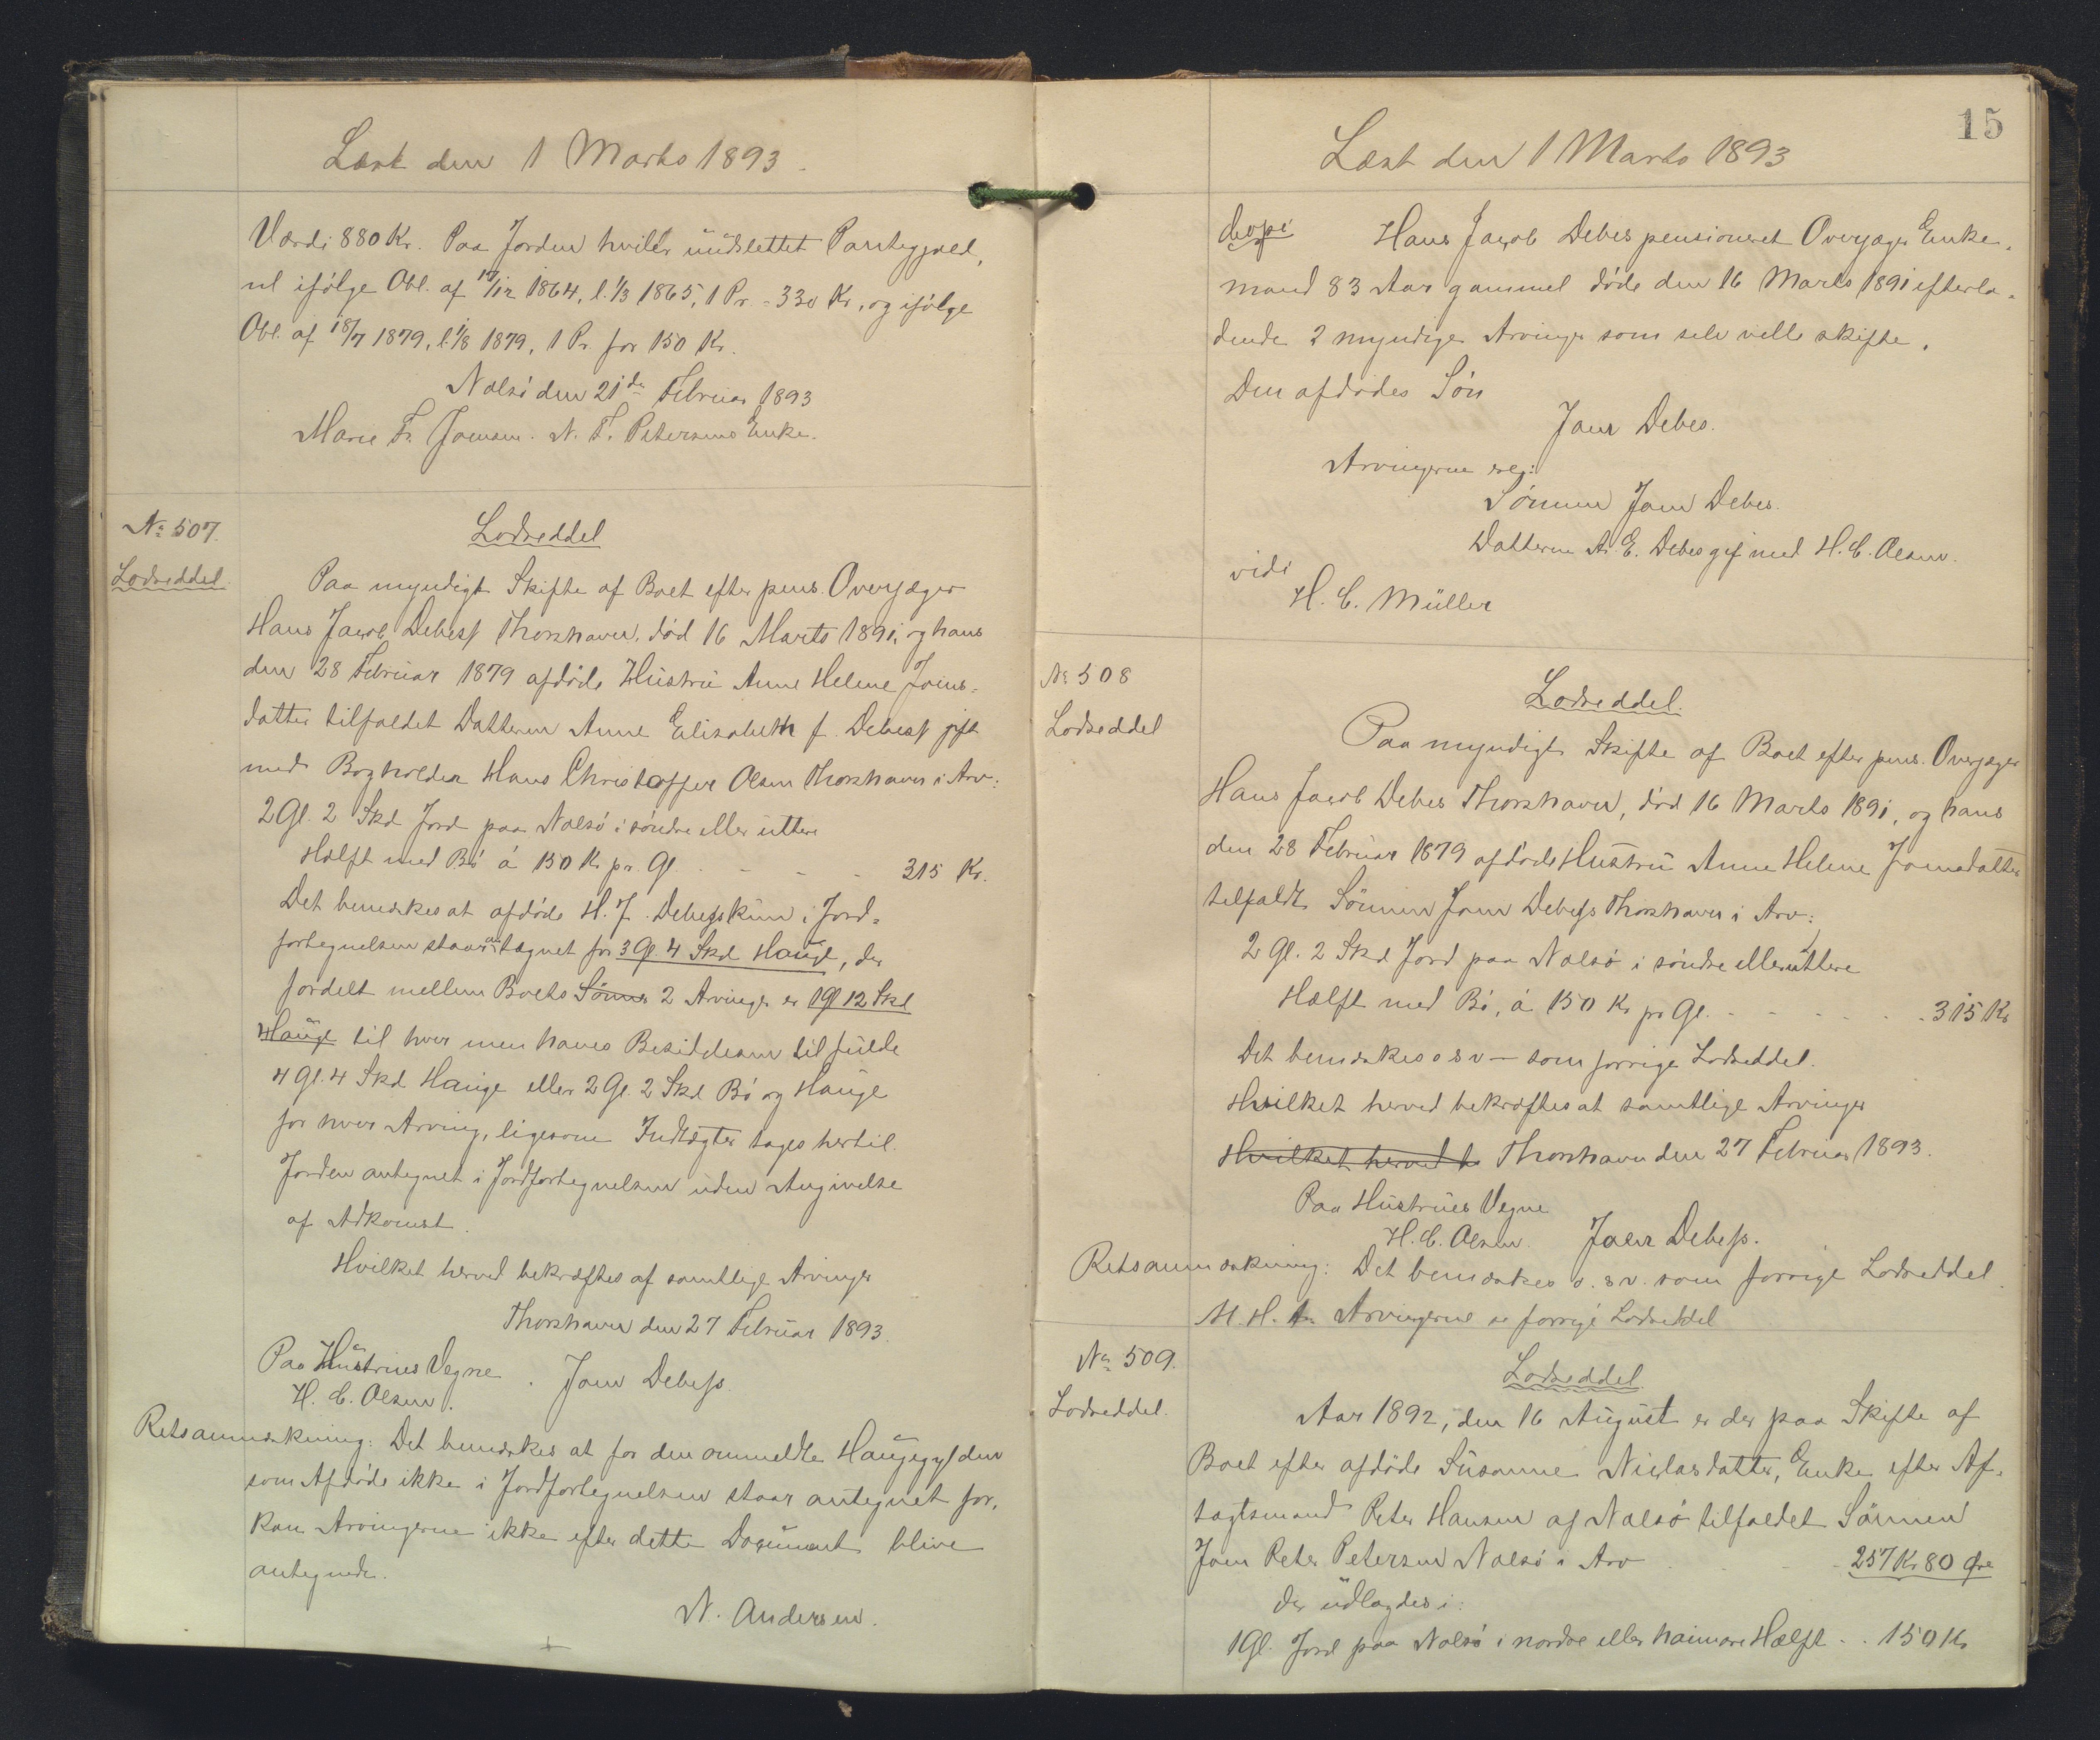 Læst den 1 Marts 1893.
Værdi 880 Kr. Paa Jorden hviler uudslettet Pantegjæld,
nl ifølge Obl. af 17/12 1864, l. 1/3 1865, 1 Pr. = 330 Kr., og ifølge
Obl. af 18/7 1879, l. 1/8 1879, 1 Pr. for 150 Kr.
Nolsö den 21de Februar 1893
Marie Fr. Joensen. N. F. Petersens Enke.
No 507.
Lodseddel.
Lodseddel
Paa myndigt Skifte af Boet efter pens. Overjæger
Hans Jacob Debess Thorshavn, död 16 Marts 1891, og hans
den 28 Februar 1879 afdöde Hustru Anne Helene Joens=
datter tilfaldet Datteren Anne Elisabeth f. Debess gift
med Bogholder Hans Christoffer Olsen Thorshavn i Arv:
2 Gl. 2 Skd Jord paa Nolsö i söndre eller uttere
Hælft med Bö á 150 Kr pr. Gl. - - - 315 Kr.
Det bemærkes at afdöde H. J. Debess kun i Jord=
fortegnelsen staar antegnet for 3 Gl. 4 Skd Hauge, der
fordelt mellem Boets Sönner 2 Arvinger er 1 Gl 12 Skd
Hauge til hver men hans Besiddelser til fulde
4 Gl. 4 Skd Hauge eller 2 Gl. 2 Skd Bö og Hauge
for hver Arving, ligesom Indtægter tages hertil.
Jorden antegnet i Jordfortegnelsen uden Angivelse
af Adkomst.
Hvilket herved bekræftes af samtlige Arvinger
Thorshavn den 27 Februar 1893.
Paa Hustrues Vegne
H. C. Olsen. Joen Debess.
Retsanmærkning: Det bemærkes at for den ommeldte Haugegylden
som Afdöde ikke i Jordfortegnelsen staar antegnet for,
kan Arvingerne ikke efter dette Document blive
antegnede.
N. Andersen.
15
Læst den 1 Marts 1893
Copi
Hans Jacob Debes pensioneret Overjæger Enke=
mand 83 Aar gammel döde den 16 Marts 1891 efterla=
dende 2 myndige Arvinger som selv ville skifte.
Den afdödes Sön
Joen Debes.
Arvingerne ere:
Sönnen Joen Debes.
Datteren A. E. Debes gift med H. C. Olsen.
vidi
H. C. Müller
No 508
Lodseddel
Lodseddel.
Paa myndigt Skifte af Boet efter pens. Overjæger
Hans Jacob Debes Thorshavn, död 16 Marts 1891, og hans
den 28 Februar 1879 afdöde Hustru Anne Helene Joensdatter
tilfaldt Sönnen Joen Debess Thorshavn i Arv:
2 Gl. 2 Skd Jord paa Nolsö i söndre eller uttere
Hælft med Bö, á 150 Kr pr Gl. - - - - - 315 Kr
Det bemærkes o s v — som forrige Lodseddel.
Hvilket herved bekræftes at samtlige Arvinger
Hvilket herved b Thorshavn den 27 Februar 1893.
Paa Hustrues Vegne
H. C. Olsen. Joen Debess.
Retsanmærkning: Det bemærkes o. s v. som forrige Lodseddel.
M. H. t. Arvingerne se forrige Lodseddel
No 509.
Lodseddel.
Lodseddel.
Aar 1892, den 16 August er der paa Skifte af
Boet efter afdöde Susanne Niclasdatter, Enke efter Af=
tagtsmand Peter Hansen af Nolsö tilfaldet Sönnen
Joen Peter Petersen Nolsö i Arv - - 257 Kr 80 Øre
der udlagdes i:
1 Gl. Jord paa Nolsö i nordre eller haimare Hælft . . 150 Kr